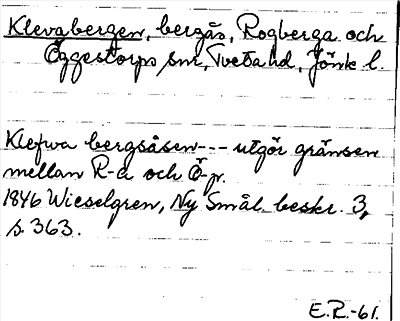 Klevabergen, bergås, Rogberga och
Öggestorps snr, Tveta hd, Jönk l.
Klefwa bergsåsen --- utgör gränsen
mellan R-a och Ö-p.
1846 Wieselgren, Ny Smål. beskr. 3,
s. 363.
E.R.-61.